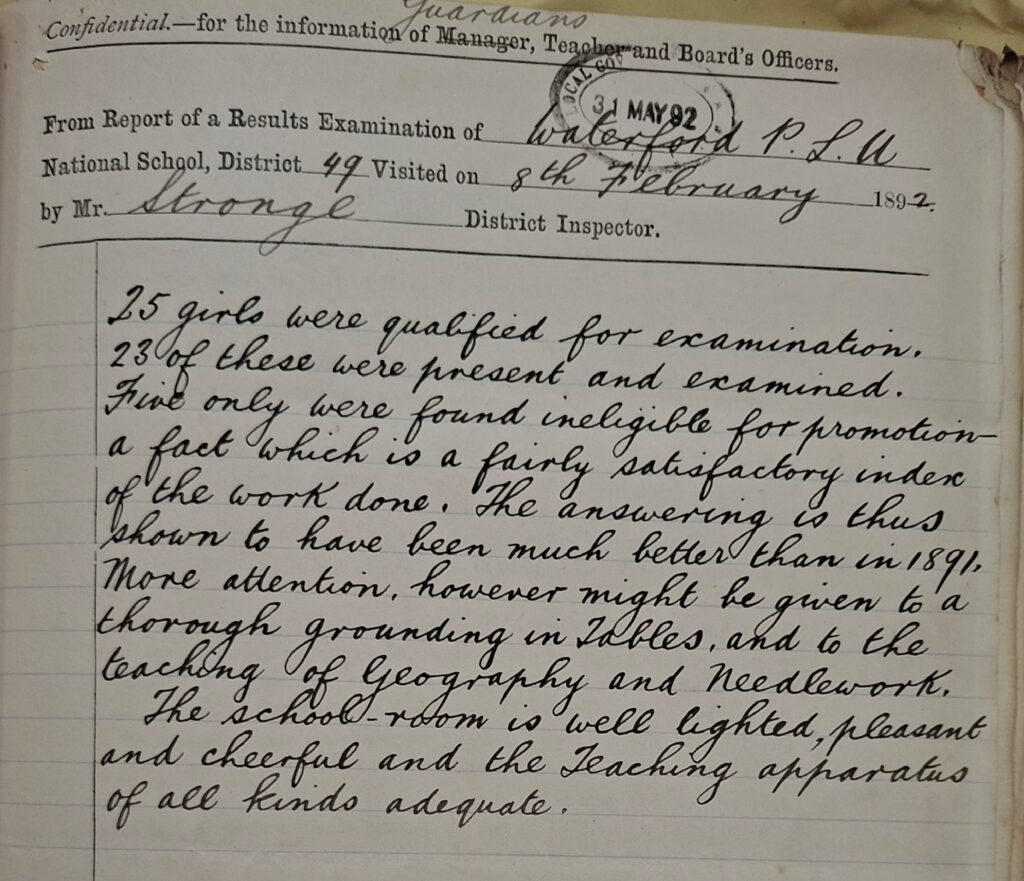 Guardians
Confidential.—for the information of Manager, Teacher and Board's Officers.
LOCAL GOV
31 MAY 92
From Report of a Results Examination of Waterford P. L. U
National School, District 49 Visited on 8th February 1892.
by Mr. Stronge District Inspector.
25 girls were qualified for examination.
23 of these were present and examined.
Five only were found ineligible for promotion—
a fact which is a fairly satisfactory index
of the work done. The answering is thus
shown to have been much better than in 1891.
More attention, however might be given to a
thorough grounding in Tables, and to the
teaching of Geography and Needlework.
The school-room is well lighted, pleasant
and cheerful and the Teaching apparatus
of all kinds adequate.